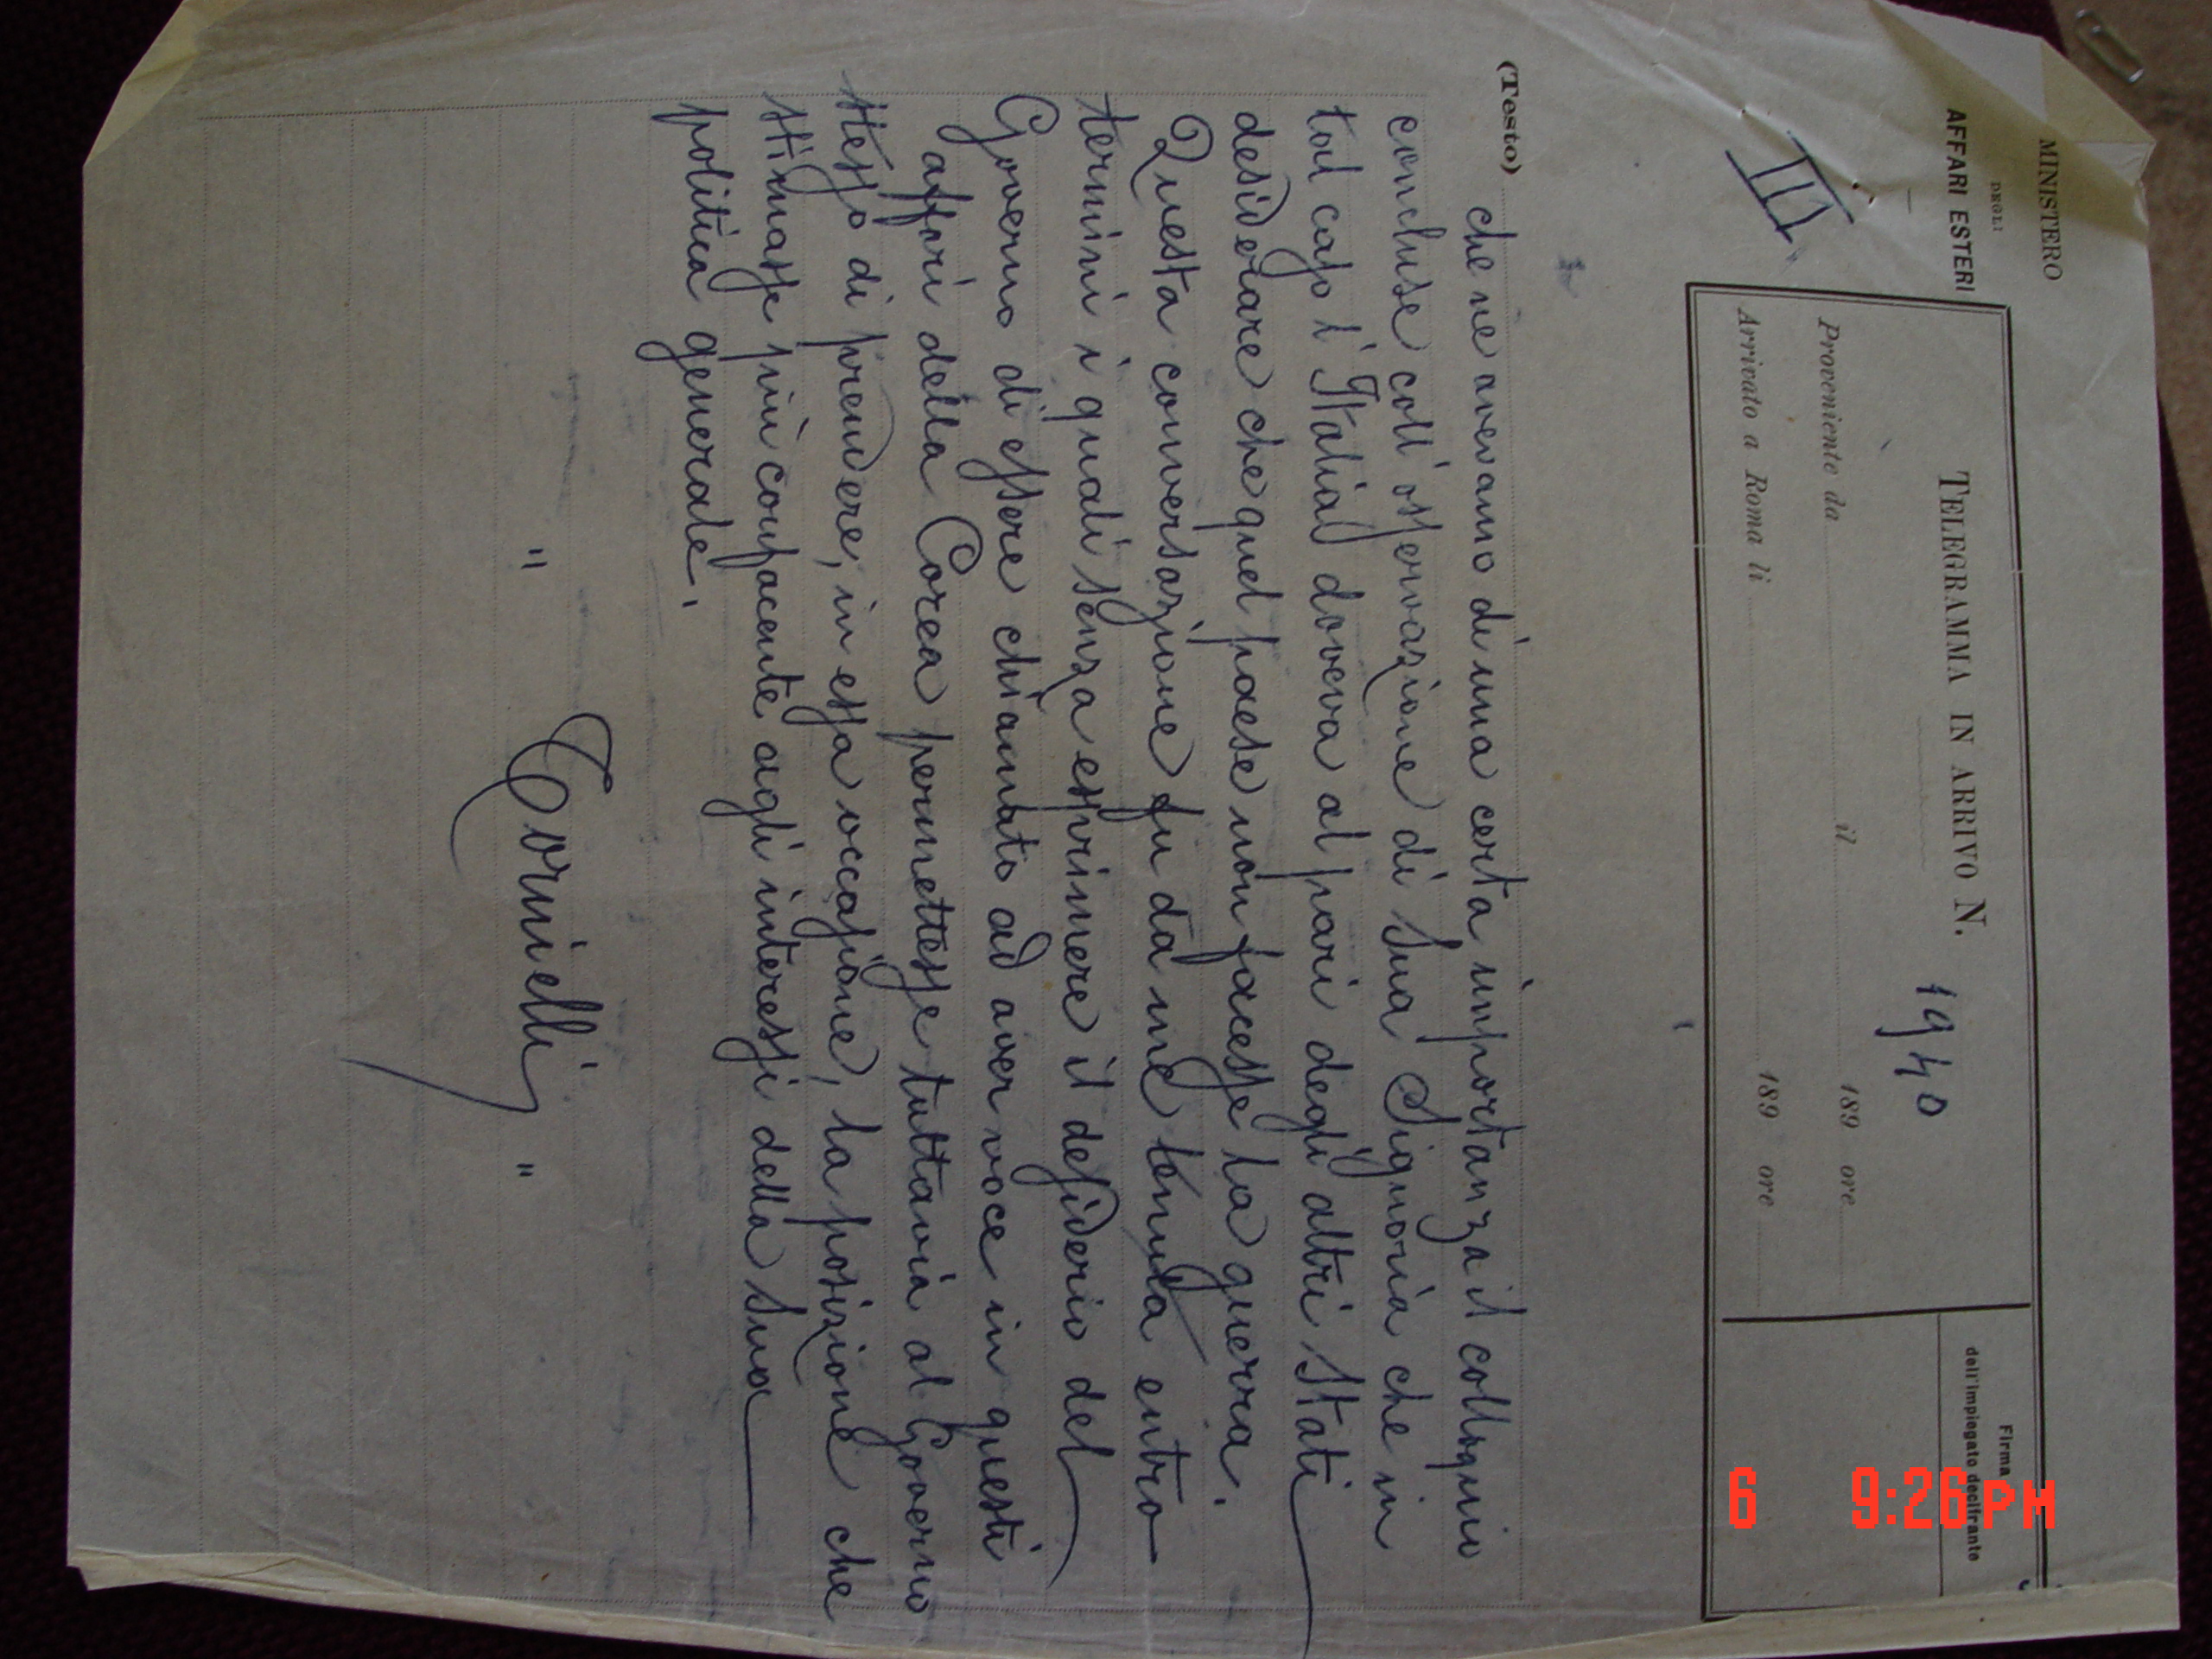 MINISTERO
DEGLI
AFFARI ESTERI
III
TELEGRAMMA IN ARRIVO N. 1940
Proveniente da il 189 ore
Arrivato a Roma li 189 ore
Firma
dell'impiegato decifrante
(Testo)
che ne avevamo di una certa importanza il colloquio
concluse coll' osservazione di Sua Signoria che in
tal caso l'Italia doveva al pari degli altri Stati
desiderare che quel paese non facesse la guerra.
Questa conversazione fu da me tenuta entro
termini i quali senza esprimere il desiderio del
Governo di essere chiamato ad aver voce in questi
affari della Corea permettesse tuttavia al Governo
stesso di prendere, in essa occasione, la posizione che
stimasse più confacente agli interessi della sua
politica generale.
" Tornielli "
6 9:26PM